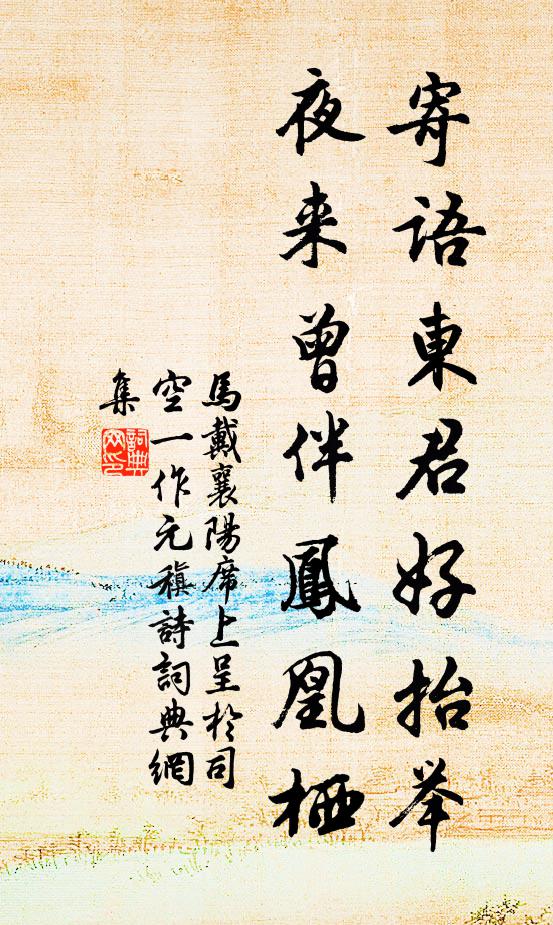 寄语東君好抬举
夜来曾伴鳳凰栖
馬戴襄陽席上呈於司
空一作元稹詩詞典網
集
詞典網印